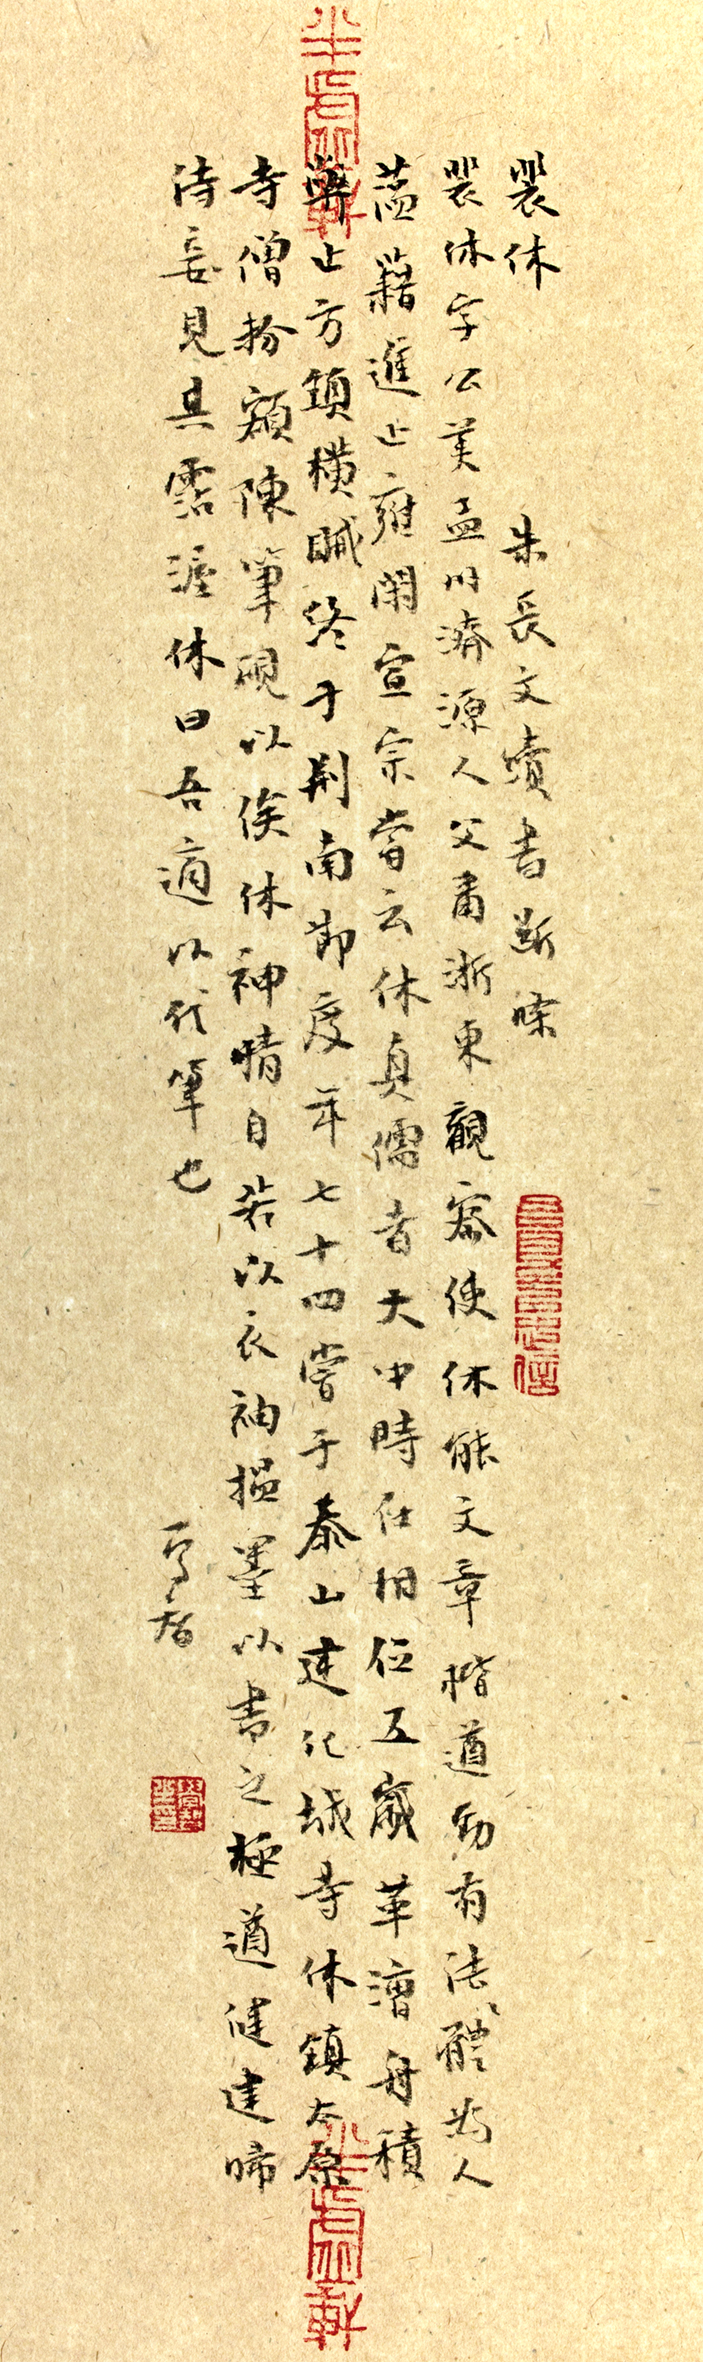 裴休 朱長文續書斷條
裴休字公美孟州濟源人父肅浙東觀察使休能文章楷遒勁有法體為人
蘊藉進止雍閑宣宗嘗云休真儒者大中時任相位五歲革漕舟積
弊止方鎮橫賦終于荆南節度年七十四嘗于泰山建化城寺休鎮太原
寺僧粉額陳筆硯以俟休神情自若以衣袖揾墨以書之極遒健逮歸
侍妾見其霑渥休曰吾適以代筆也